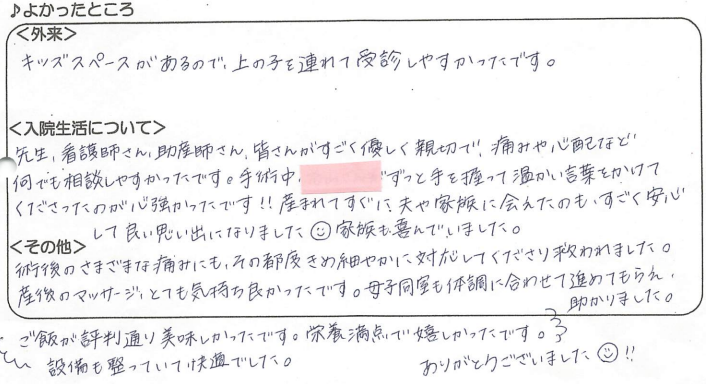 ♪よかったところ
<外来>
キッズスペースがあるので、上の子を連れて受診しやすかったです。
<入院生活について>
先生、看護師さん、助産師さん、皆さんがすごく優しく親切で、痛みや心配など
何でも相談しやすかったです。手術中、ずっと手を握って温かい言葉をかけて
くださったのが心強かったです!! 産まれてすぐに夫や家族に会えたのも、すごく安心
して良い思い出になりました☺家族も喜んでいました。
<その他>
術後のさまざまな痛みにも、その都度きめ細やかに対応してくださり救われました。
産後のマッサージ、とても気持ち良かったです。母子同室も体調に合わせて進めてもらえ、
助かりました。
ご飯が評判通り美味しかったです。栄養満点で嬉しかったです。
設備も整っていて快適でした。
ありがとうございました☺!!